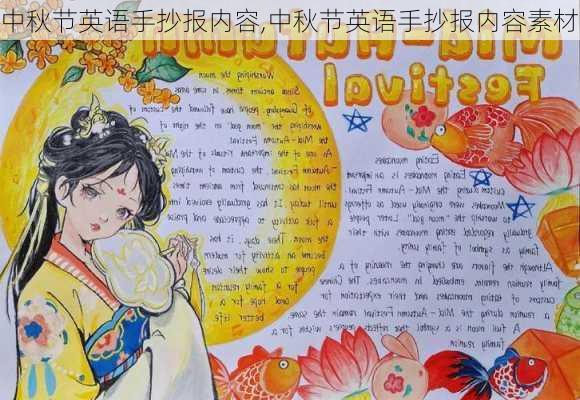 中秋节英语手抄报内容,中秋节英语手抄报内容素材
Mid-Autumn
Festival
Worshiping the moon
Since ancient times in some areas
of Guangdong, people have followed the custom of
worshiping the moon god on the night of
the Mid-Autumn Festival
As one of the important rituals of the Mid
-Autumn Festival, the custom of worshiping
the moon has continued from ancient times
until today. It has gradually evolved into
a folk activity to appreciate and praise
the moon. These days, it has
become an activity for modern
people to show their desire
for a family reunion
and hope for a
better life
Eating mooncakes
Eating mooncakes is an important
custom during the Mid-Autumn Festival
Mooncakes were originally used as offerings
to worship to the moon god. Later people
gradually regarded eating mooncakes with their
family as symbol of family unity
Although the flavors are changing the meaning of a
family reunion remains embodied in mooncakes. The Chinese
customs of eating mooncakes and their expectation for
a reunion during the Mid-Autumn Festival remain the same
A full moon is a symbol that reflects people's wishes for a
family reunion